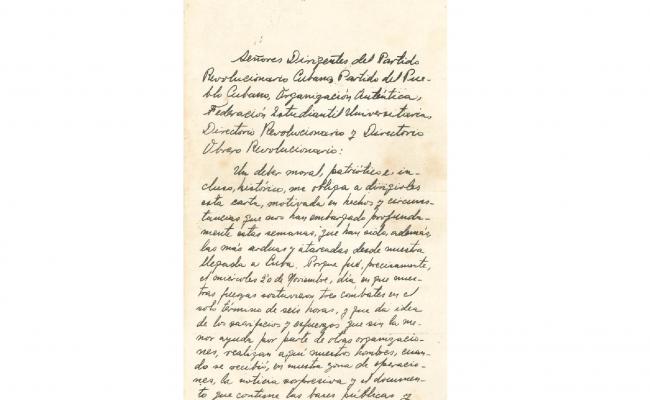 Señores Dirigentes del Partido
Revolucionario Cubano, Partido del Pue-
blo Cubano, Organización Auténtica,
Federación Estudiantil Universitaria,
Directorio Revolucionario y Directorio
Obrero Revolucionario:
Un deber moral, patriótico e, in-
cluso, histórico, me obliga a dirigirles
esta carta, motivada en hechos y circuns-
tancias que nos han embargado profunda-
mente estas semanas, que han sido, además,
las más arduas y atareadas desde nuestra
llegada a Cuba. Porque fue, precisamente,
el miércoles 20 de Noviembre, día en que nues-
tras fuerzas sostuvieron tres combates en el
solo término de seis horas, y que da idea
de los sacrificios y esfuerzos que sin la me-
nor ayuda por parte de otras organizacio-
nes, realizan aquí nuestros hombres, cuan-
do se recibió, en nuestra zona de operacio-
nes, la noticia sorpresiva y el documen-
to que contiene las bases públicas y